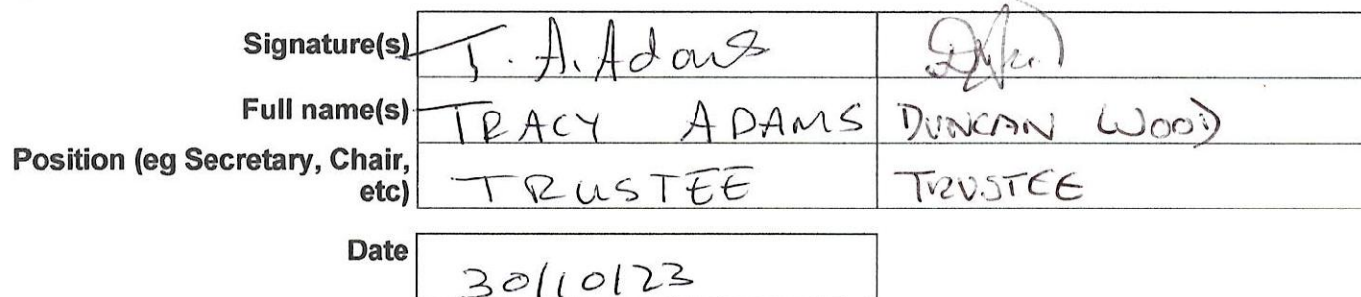 Signature(s) T. A. Adams
Full name(s) TRACY ADAMS DUNCAN WOOD
Position (eg Secretary, Chair,
etc) TRUSTEE TRUSTEE
Date 30/10/23